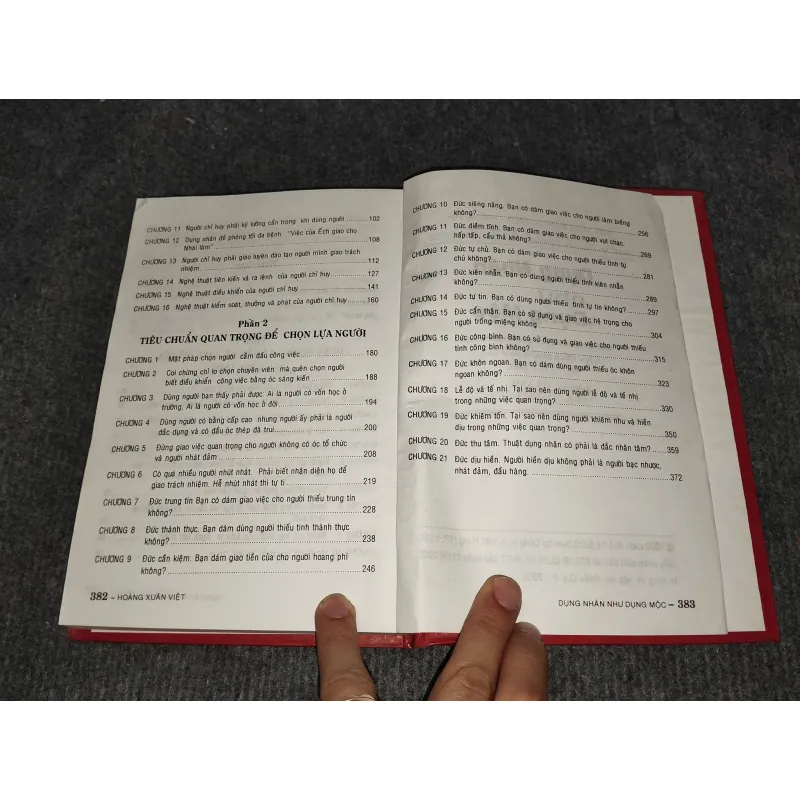 CHƯƠNG 11 Người chỉ huy phải kỹ lưỡng cẩn trọng khi dùng người ................ 102
CHƯƠNG 12 Dụng nhân để phòng tối đa bệnh "Việc của Ếch giao cho
Nhái làm" ................ 108
CHƯƠNG 13 Người chỉ huy phải giáo luyện đào tạo người mình giao trách
nhiệm ................ 112
CHƯƠNG 14 Nghệ thuật tiên kiến và ra lệnh của người chỉ huy ................ 127
CHƯƠNG 15 Nghệ thuật điều khiển của người chỉ huy ................ 141
CHƯƠNG 16 Nghệ thuật kiểm soát, thưởng và phạt của người chỉ huy ................ 160
Phần 2
TIÊU CHUẨN QUAN TRỌNG ĐỂ CHỌN LỰA NGƯỜI
CHƯƠNG 1 Mật pháp chọn người cầm đầu công việc ................ 180
CHƯƠNG 2 Coi chừng chỉ lo chọn chuyên viên mà quên chọn người
biết điều khiển công việc bằng óc sáng kiến ................ 188
CHƯƠNG 3 Dùng người bạn thấy phải được: Ai là người có vốn học ở
trường, Ai là người có vốn học ở đời ................ 194
CHƯƠNG 4 Dùng người có bằng cấp cao nhưng người ấy phải là người
đắc dụng và có đầu óc thép đã trui ................ 200
CHƯƠNG 5 Đừng giao việc quan trọng cho người không có óc tổ chức
và người nhát đảm ................ 208
CHƯƠNG 6 Có quá nhiều người nhút nhát. Phải biết nhận diện họ để
giao trách nhiệm. Hễ nhút nhát thì tự ti ................ 219
CHƯƠNG 7 Đức trung tín Bạn có dám giao việc cho người thiếu trung tín
không? ................ 228
CHƯƠNG 8 Đức thành thực. Bạn dám dùng người thiếu tính thành thực
không? ................ 238
CHƯƠNG 9 Đức cần kiệm. Bạn dám giao tiền của cho người hoang phí
không? ................ 246
382 – HOÀNG XUÂN VIỆT
CHƯƠNG 10 Đức siêng năng. Bạn có dám giao việc cho người làm biếng
không? ................ 256
CHƯƠNG 11 Đức điềm tĩnh. Bạn có dám giao việc cho người vụt chạc,
hấp tấp, cẩu thả không? ................ 269
CHƯƠNG 12 Đức tự chủ. Bạn có dám giao việc cho người thiếu tính tự
chủ không? ................ 281
CHƯƠNG 13 Đức kiên nhẫn. Bạn có dùng người thiếu tính kiên nhẫn
không? ................ 289
CHƯƠNG 14 Đức tự tin. Bạn có dùng người thiếu tính tự tin không? ................ 297
CHƯƠNG 15 Đức cẩn thận. Bạn có sử dụng và giao việc hệ trọng cho
người trống miệng không ................ 304
CHƯƠNG 16 Đức công bình. Bạn có sử dụng và giao việc cho người thiếu
tính công bình không? ................ 315
CHƯƠNG 17 Đức khôn ngoan. Bạn có dám dùng người thiếu óc khôn
ngoan không? ................ 323
CHƯƠNG 18 Lễ độ và tế nhị. Tại sao nên dùng người lễ độ và tế nhị
trong những việc quan trọng? ................ 330
CHƯƠNG 19 Đức khiêm tốn. Tại sao nên dùng người khiêm nhu và hiền
dịu trong những việc quan trọng? ................ 350
CHƯƠNG 20 Đức thu tâm. Thuật dụng nhân có phải là đắc nhân tâm? ................ 359
CHƯƠNG 21 Đức dịu hiền. Người hiền dịu không phải là người bạc nhược,
nhát đảm, đầu hàng. ................ 372
DỤNG NHÂN NHƯ DỤNG MỘC – 383